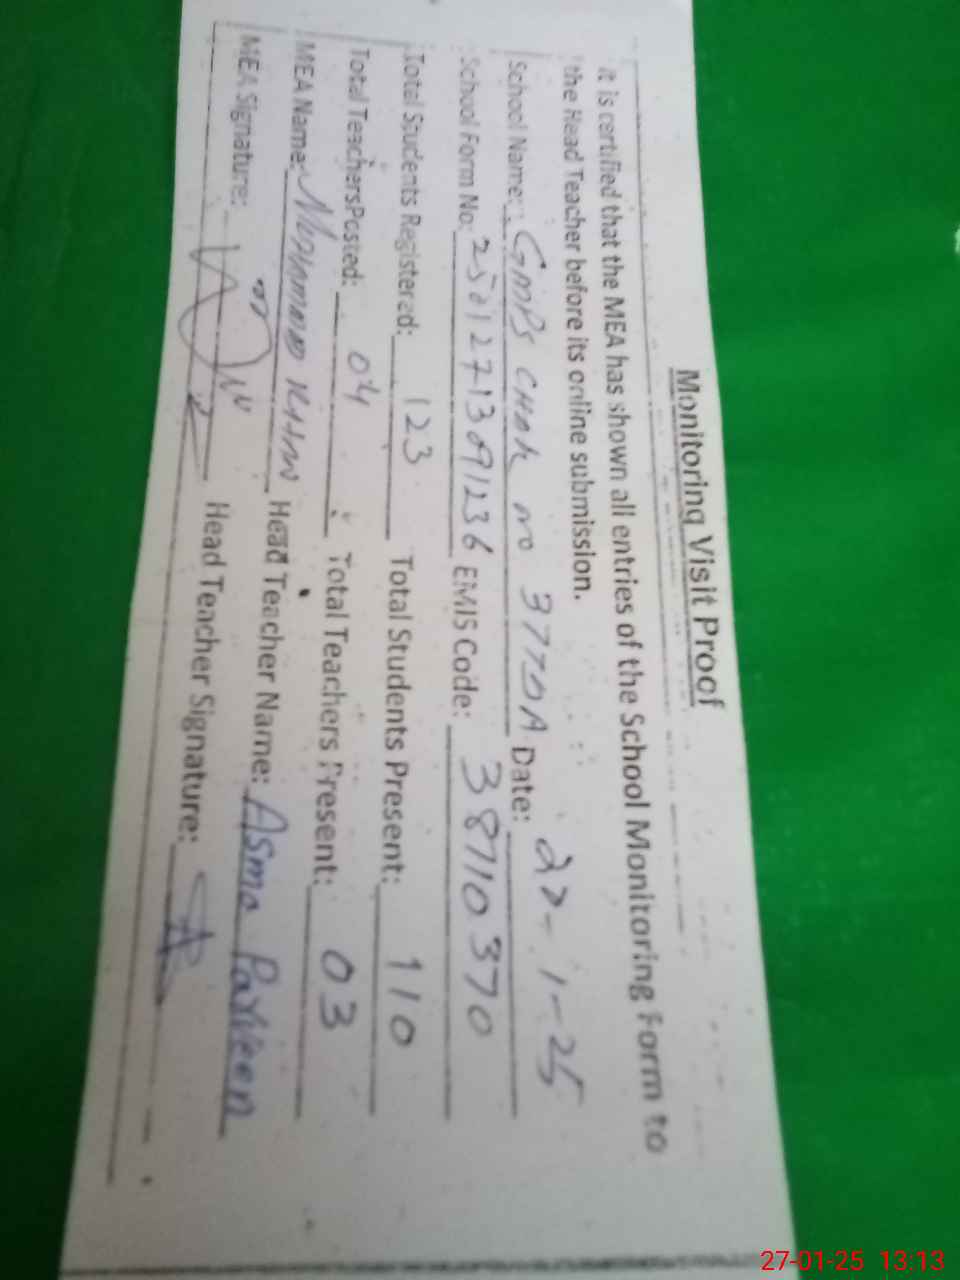 Monitoring Visit Proof
it is certified that the MEA has shown all entries of the School Monitoring Form to
the Head Teacher before its online submission.
School Name: GMPS CHAK NO 377DA Date: 27-1-25
School Form No: EMIS Code: 38710370
Total Students Registered: 123 Total Students Present: 110
Total Teachers Posted: 04 Total Teachers Present: 03
MEA Name: Muhammad Khan Head Teacher Name: Asma Parveen
MEA Signature: Head Teacher Signature:
27-01-25 13:13